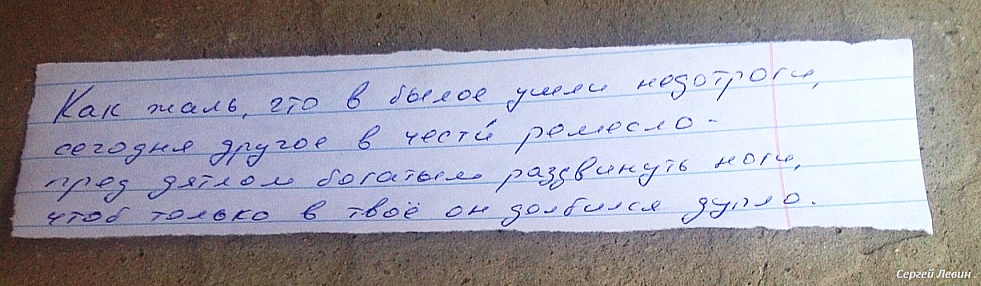 Как жаль, что в былое ушли недотроги,
сегодня другое в чести́ ремесло -
пред дятлом богатым раздвинуть ноги,
чтоб только в твоё он долбился дупло.
Сергей Левин